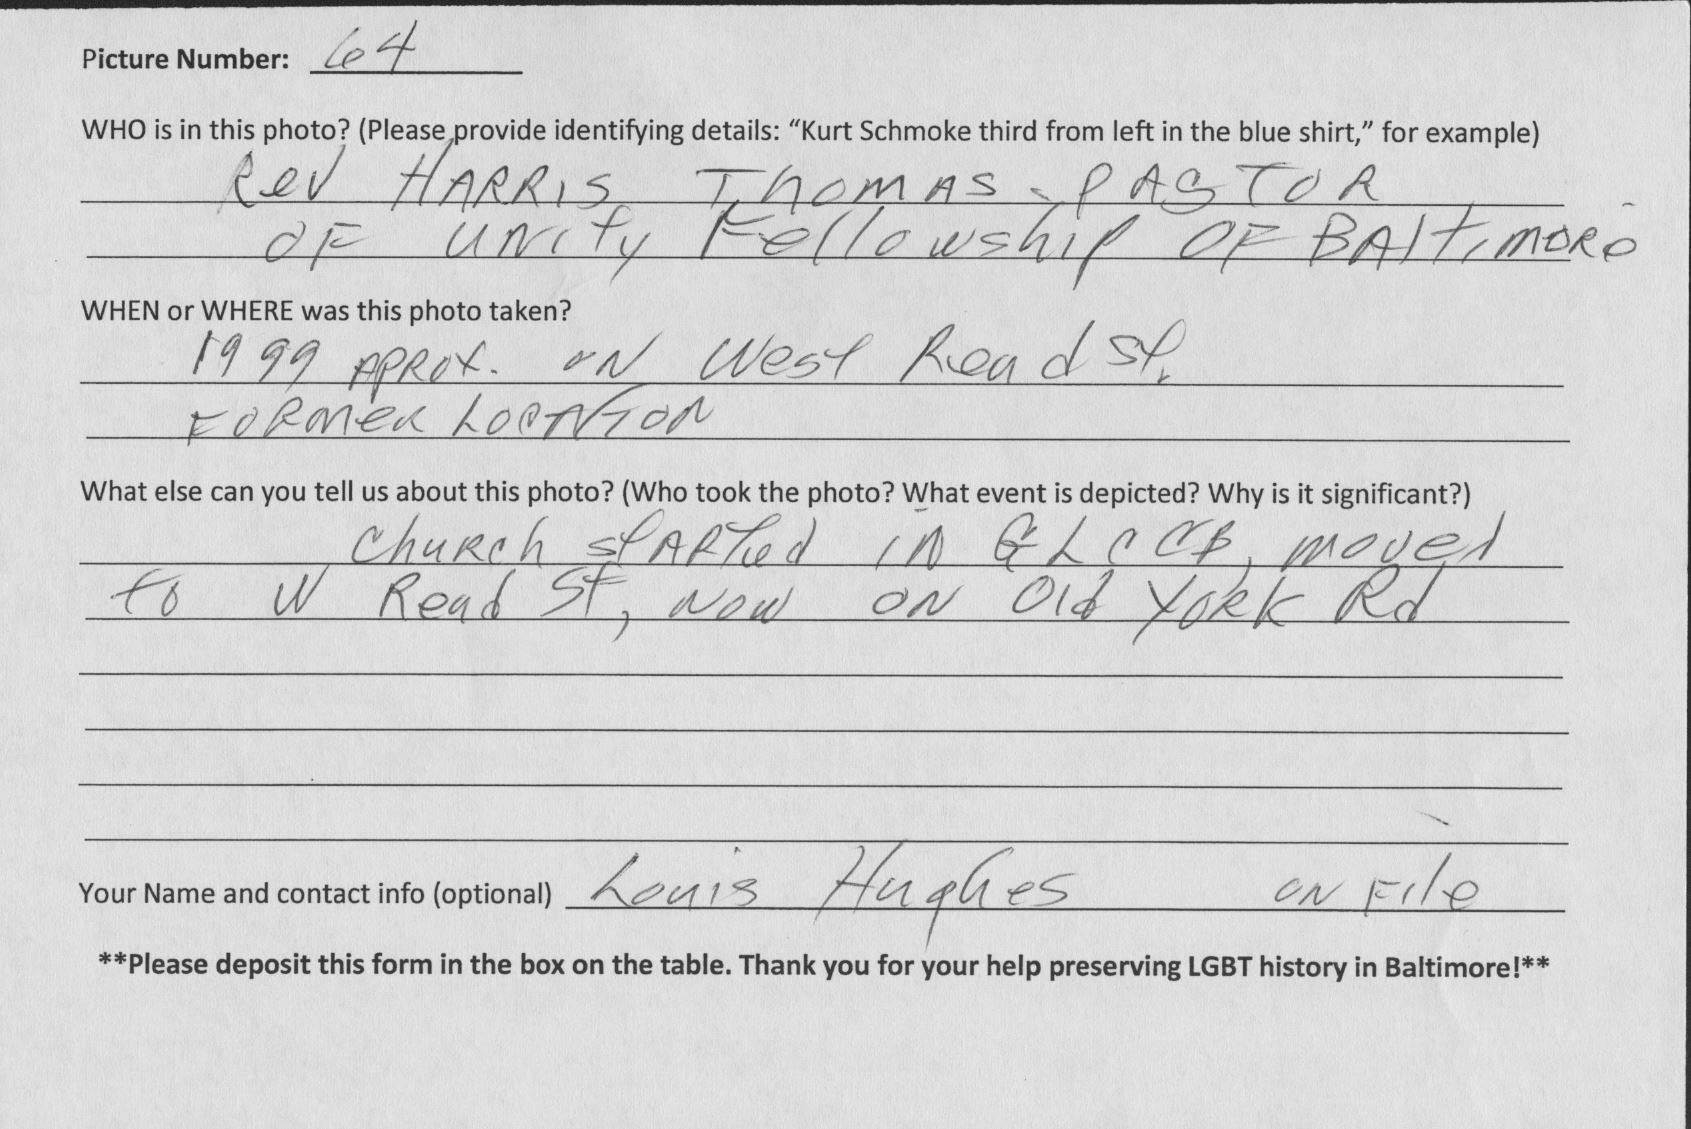 Picture Number: 64
WHO is in this photo? (Please provide identifying details: “Kurt Schmoke third from left in the blue shirt,” for example)
Rev HARRIS Thomas - PASTOR
OF UNity Fellowship OF BAltimore
WHEN or WHERE was this photo taken?
1999 APROX. ON West Read St.
FORMER LOCATION
What else can you tell us about this photo? (Who took the photo? What event is depicted? Why is it significant?)
Church STARTed IN GLCCB, moved
to W Read St, Now ON Old York Rd
Your Name and contact info (optional) Louis Hughes ON File
**Please deposit this form in the box on the table. Thank you for your help preserving LGBT history in Baltimore!**